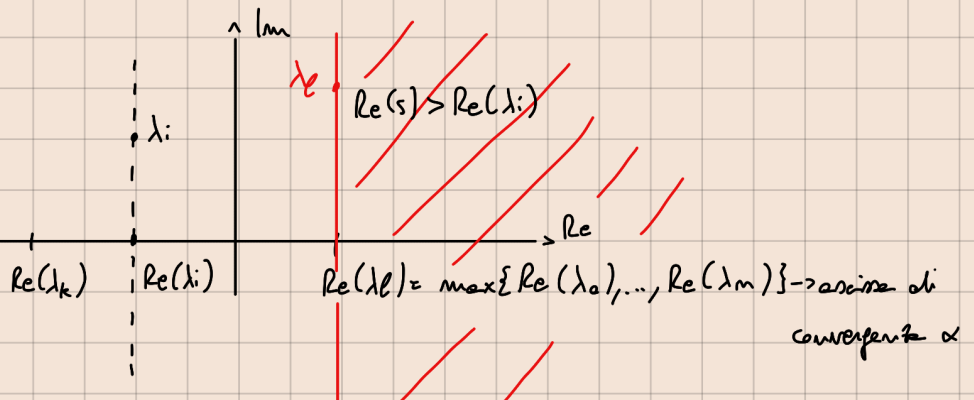 Im
λℓ
Re(s) > Re(λi)
λi
Re
Re(λk) Re(λi) Re(λℓ) = max{Re(λ0),..., Re(λm)} -> ascissa di
convergenza α